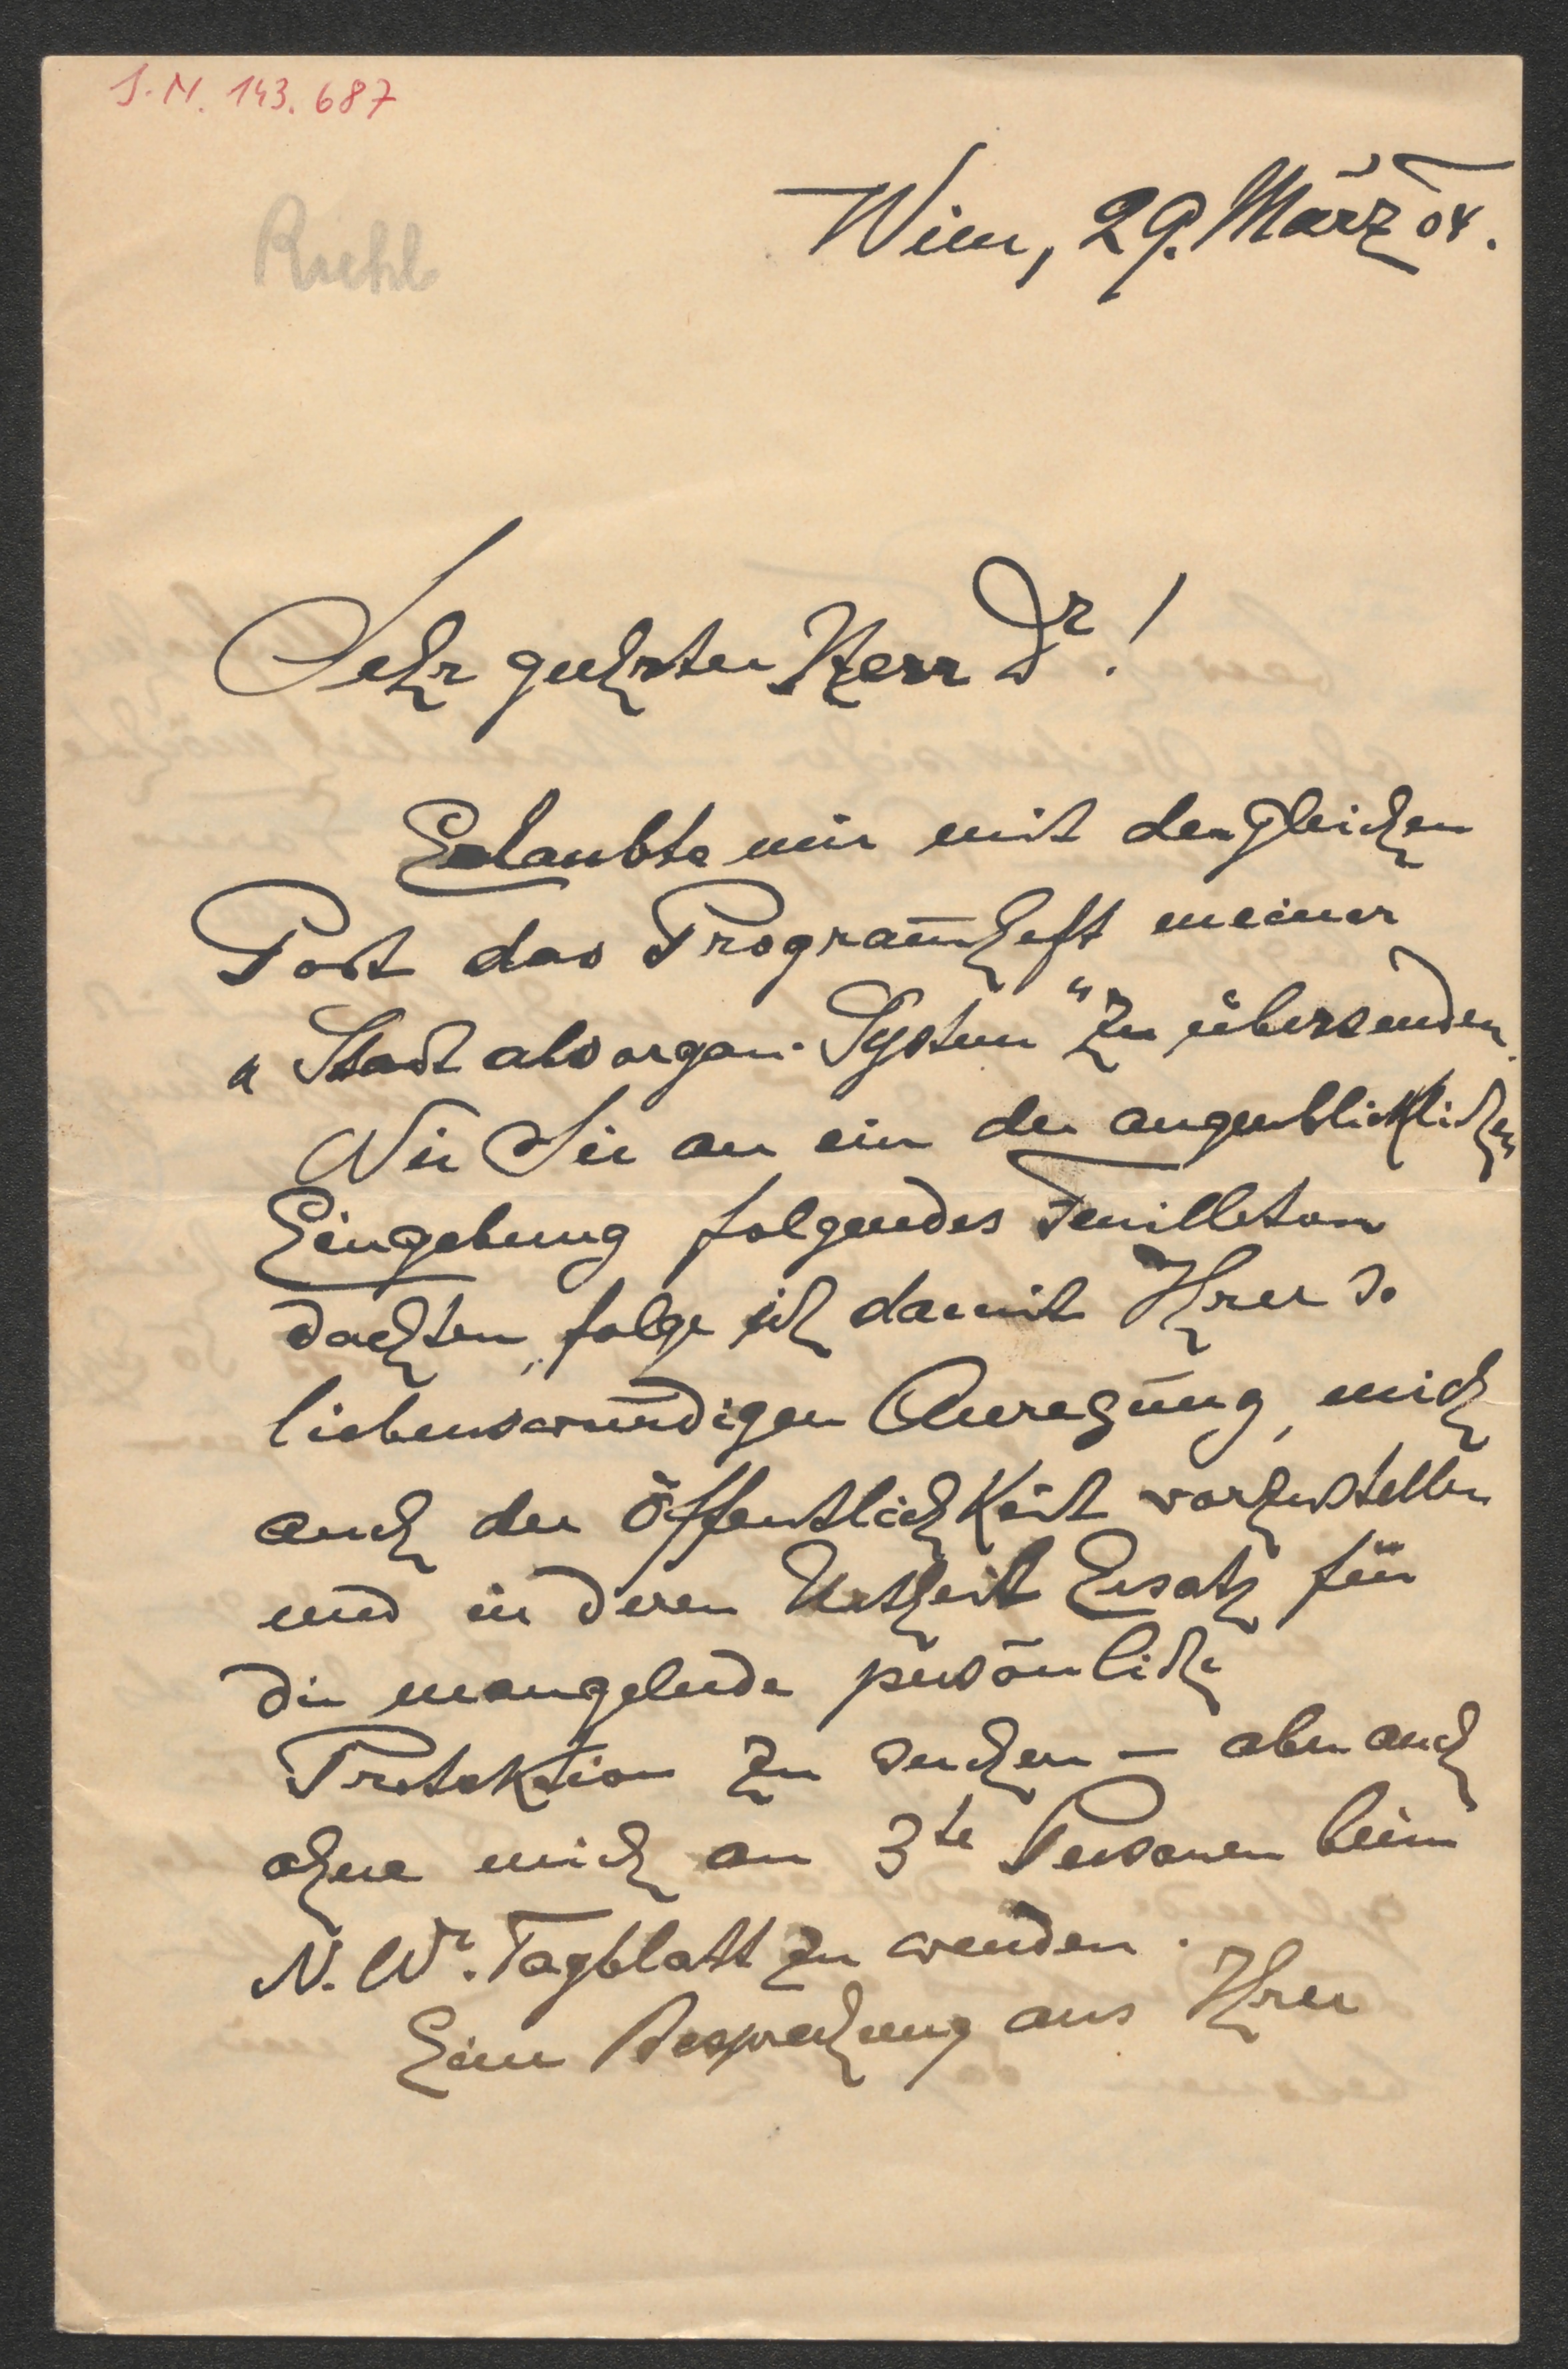 I.N. 143.687
Riehl
Wien, 29. März 04.
Sehr geehrter Herr Dr!
Erlaubte mir mit der gleichen
Post das Programheft meiner
„Stadt als organ. System" zu übersenden.
Wie Sie an ein der augenblicklichen
Eingebung folgendes Feuilleton
dachten, folge ich damit Ihrer so
liebenswürdigen Anregung, mich
auch der Öffentlichkeit vorzustellen
und in deren Urtheil Ersatz für
die mangelnde persönliche
Protektion zu suchen – aber auch
ohne mich an 3te Personen beim
N. Wr. Tagblatt zu wenden.
Eine Besprechung aus Ihrer